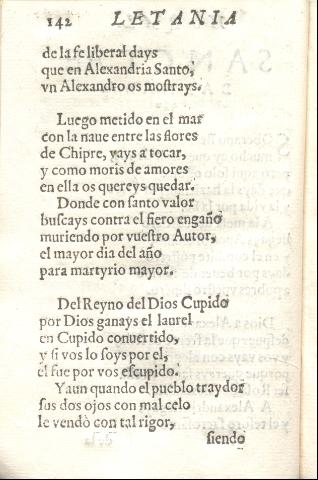 142 LETANIA
de la fe liberal days
que en Alexandria Santo,
vn Alexandro os mostrays.
Luego metido en el mar
con la naue entre las flores
de Chipre, vays a tocar,
y como moris de amores
en ella os quereys quedar.
Donde con santo valor
buscays contra el fiero engaño
muriendo por vuestro Autor,
el mayor dia del año
para martyrio mayor.
Del Reyno del Dios Cupido
por Dios ganays el laurel
en Cupido conuertido,
y si vos lo soys por el,
el fue por vos escupido.
Y aun quando el pueblo traydor
sus dos ojos con mal celo
le vendò con tal rigor,
siendo